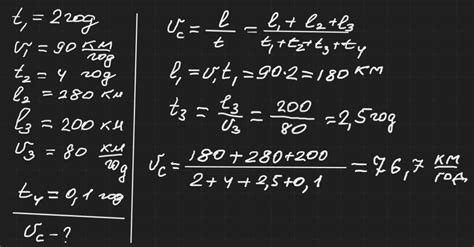 t₁=2год
v₁=90 км/год
t₂=4 год
l₂=280 км
l₃=200 км
v₃=80 км/год
t₄=0,1 год
v_c-?
v_c=l/t=(l₁+l₂+l₃)/(t₁+t₂+t₃+t₄)
l₁=v₁t₁=90·2=180 км
t₃=l₃/v₃=200/80=2,5год
v_c=(180+280+200)/(2+4+2,5+0,1)=76,7 км/год